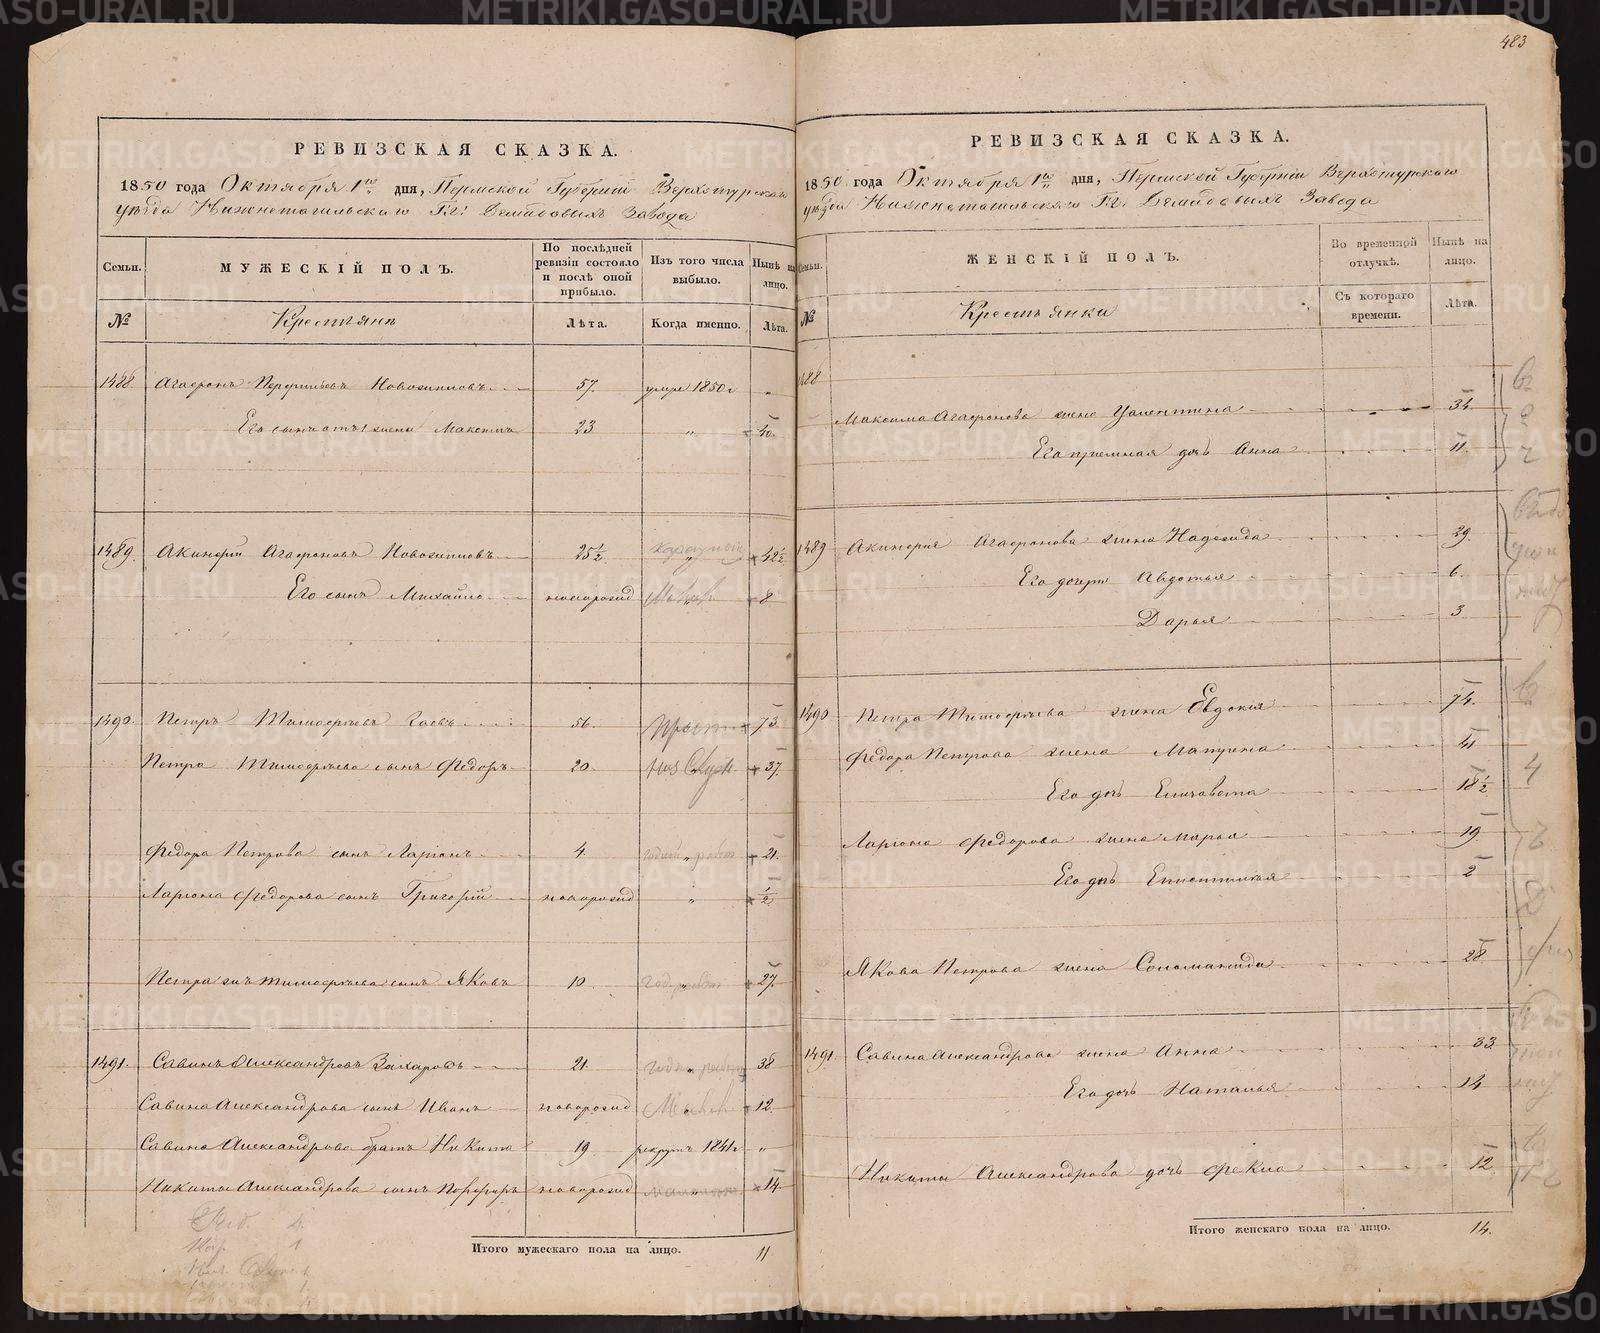 483
РЕВИЗСКАЯ СКАЗКА.
1850 года Октября 1го дня, Пермской Губерніи Верхотурскаго
уѣзда Нижнетагильскаго Гг: Демидовыхъ Завода
Семьи. МУЖЕСКІЙ ПОЛЪ. По послѣдней ревизіи состояло и послѣ оной прибыло. Изъ того числа выбыло. Нынѣ на лицо.
№ Крестьянъ Лѣта. Когда именно. Лѣта.
1488. Агафонъ Новожиловъ 57. умре 1850 г „
Его сынъ отъ 1 жены Максимъ 23 „ 40.
1489. Акинфій Агафоновъ Новожиловъ 25½ 42½
Его сынъ Михайло новорожд 8
1490. Петръ Тимофеевъ Гаевъ 56. 73.
Петра Тимофеева сынъ Федоръ 20. 37.
Федора Петрова сынъ Ларіонъ 4. „ 21.
Ларіона Федорова сынъ Григорій новорожд „ ½
Петра Тимофеева сынъ Яковъ 10. „ 27.
1491. Савинъ Александровъ Захаровъ 21. „ 38
Савина Александрова сынъ Иванъ новорожд 12.
Савина Александрова братъ Никита 19 рекрутъ 1841 г „
Никиты Александрова сынъ Порфиръ новорожд „ 14.
Итого мужескаго пола на лицо. 11
РЕВИЗСКАЯ СКАЗКА.
1850 года Октября 1го дня, Пермской Губерніи Верхотурскаго
уѣзда Нижнетагильскаго Гг: Демидовыхъ Завода
Семьи. ЖЕНСКІЙ ПОЛЪ. Во временной отлучкѣ. Нынѣ на лицо.
№ Крестьянки Съ котораго времени. Лѣта.
1488
Максима Агафонова жена Уалентина 34.
Его приемная дочь Анна 11.
1489 Акинфія Агафонова жена Надежда 29.
Его дочери Авдотья 6.
Дарья 3.
1490 Петра Тимофеева жена Евдокія 74.
Федора Петрова жена Матрена 41
Его дочь Елизавета 18½
Ларіона Федорова жена Марья 19.
Его дочь 2
Якова Петрова жена Соломанида 28
1491. Савина Александрова жена Анна 33
Его дочь Наталья 14
Никиты Александрова дочь Фекла 12.
Итого женскаго пола на лицо. 14.
METRIKI.GASO-URAL.RU